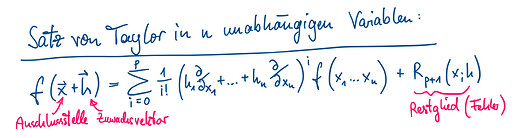 Satz von Taylor in n unabhängigen Variablen:
f(x⃗+h⃗) = ∑_{i=0}^{p} 1/i! (h₁ ∂/∂x₁ + ... + hₙ ∂/∂xₙ)^i f(x₁...xₙ) + R_{p+1}(x;h)
Anschlussstelle Zuwachsvektor Restglied (Fehler)